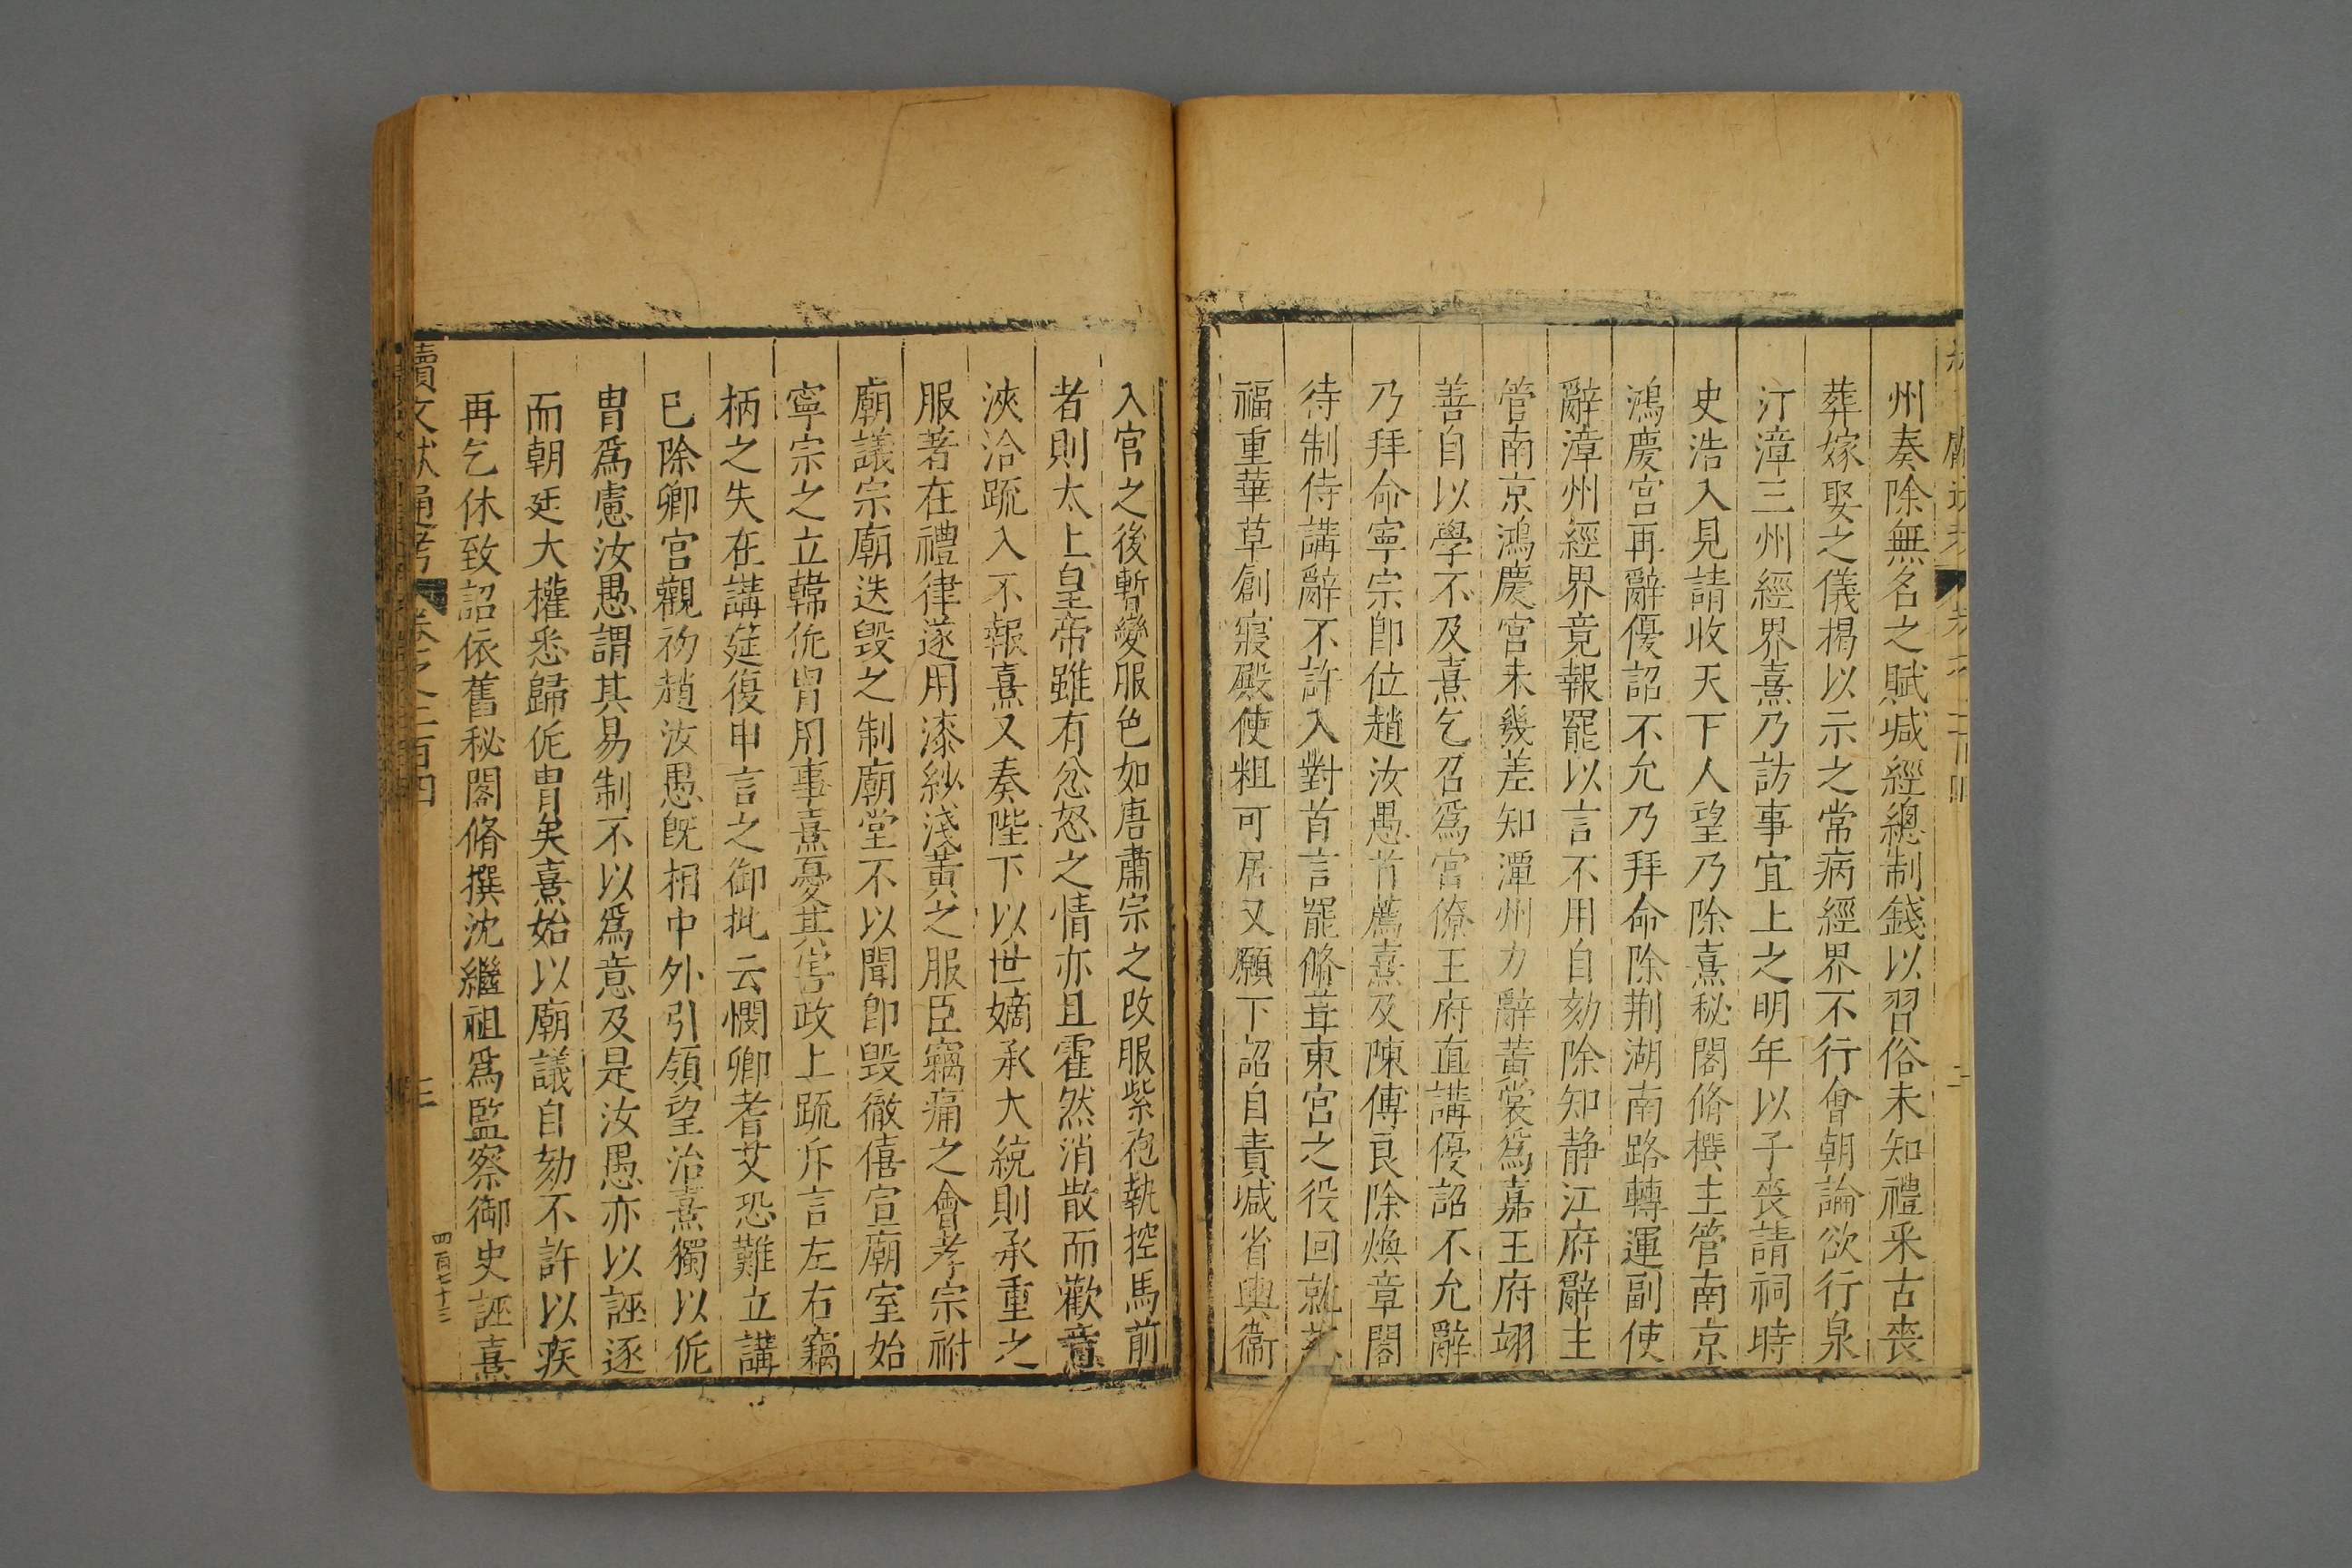 州奏除無名之賦减經總制錢以習俗未知禮采古喪
葬嫁娶之儀揭以示之常病經界不行會朝論欲行泉
汀漳三州經界熹乃訪事宜上之明年以子喪請祠時
史浩入見請收天下人望乃除熹秘閣脩撰主管南京
鴻慶宮再辭優詔不允乃拜命除荆湖南路轉運副使
辭漳州經界竟報罷以言不用自劾除知静江府辭主
管南京鴻慶宮未幾差知潭州力辭黃裳爲嘉王府翊
善自以學不及熹乞召爲宮僚王府直講優詔不允辭
乃拜命寧宗卽位趙汝愚首薦熹及陳傅良除煥章閣
待制侍講辭不許入對首言罷脩葺東宮之役回就
福重華草創寢殿使粗可居又願下詔自責减省輿衞
入宫之後暫變服色如唐肅宗之改服紫袍執控馬前
者則太上皇帝雖有忿怒之情亦且霍然消散而歡意
浹洽疏入不報熹又奏陛下以世嫡承大統則承重之
服著在禮律遂用漆紗淺黃之服臣竊痛之會孝宗祔
廟議宗廟迭毀之制廟堂不以聞卽毀徹僖宣廟室始
寧宗之立韓侂冑用事熹憂其害政上疏斥言左右竊
柄之失在講筵復申言之御批云憫卿耆艾恐難立講
已除卿宮觀初趙汝愚旣相中外引領望治熹獨以侂
冑爲慮汝愚謂其易制不以爲意及是汝愚亦以誣逐
而朝廷大權悉歸侂冑矣熹始以廟議自劾不許以疾
再乞休致詔依舊秘閣脩撰沈繼祖爲監察御史誣熹
續文獻通考 卷之二百四 三
四百七十三